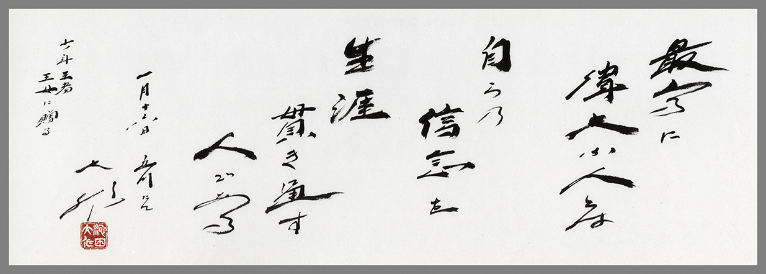 最高に
偉大な人は
自らの
信念を
生涯
貫き通す
人である
一月十六日
大作
王者
王女に贈る